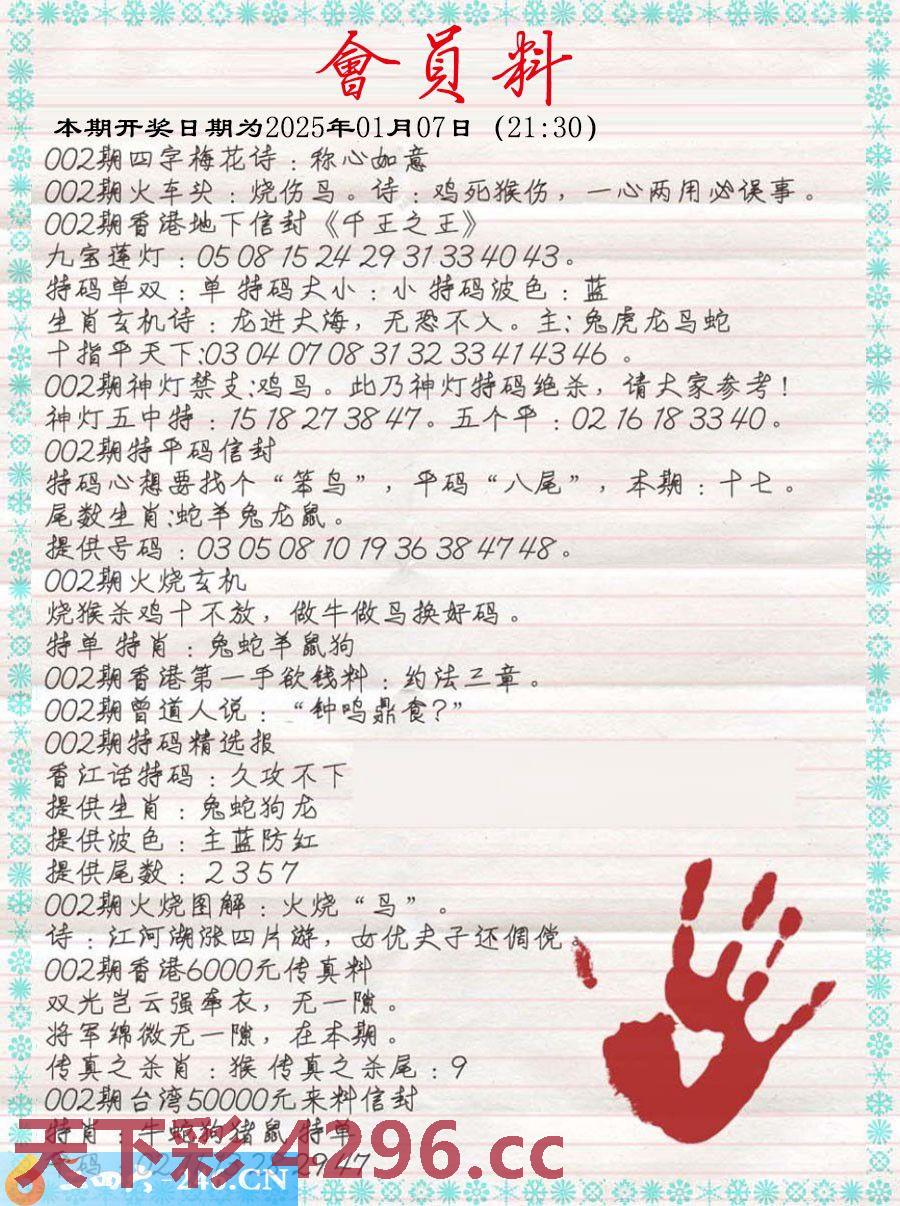 會員料
本期开奖日期为2025年01月07日 (21:30)
002期四字梅花诗：称心如意
002期火车头：烧伤鸟。诗：鸡死猴伤，一心两用必误事。
002期香港地下信封《千王之王》
九宝莲灯：05 08 15 24 29 31 33 40 43。
特码单双：单 特码大小：小 特码波色：蓝
生肖玄机诗：龙进大海，无恐不入。主：兔虎龙鸟蛇
十指平天下:03 04 07 08 31 32 33 41 43 46 。
002期神灯禁支:鸡鸟。此乃神灯特码绝杀，请大家参考！
神灯五中特：15 18 27 38 47。五个平：02 16 18 33 40。
002期特平码信封
特码心想要找个“笨鸟”，平码“八尾”，本期：十七。
尾数生肖:蛇羊兔龙鼠。
提供号码：03 05 08 10 19 36 38 47 48。
002期火烧玄机
烧猴杀鸡十不放，做牛做鸟换好码。
特单 特肖：兔蛇羊鼠狗
002期香港第一手欲钱料：约法三章。
002期曾道人说：“钟鸣鼎食？”
002期特码精选报
香江话特码：久攻不下
提供生肖：兔蛇狗龙
提供波色：主蓝防红
提供尾数：2 3 5 7
002期火烧图解：火烧“鸟”。
诗：江河湖涨四片游，女优夫子还倜傥。
002期香港6000元传真料
双光岂云强牵衣，无一隙。
将军绵微无一隙，在本期。
传真之杀肖：猴 传真之杀尾：9
002期台湾50000元来料信封
特肖：牛蛇狗猪鼠 特单
29 47
天下彩 4296.cc
246.CN